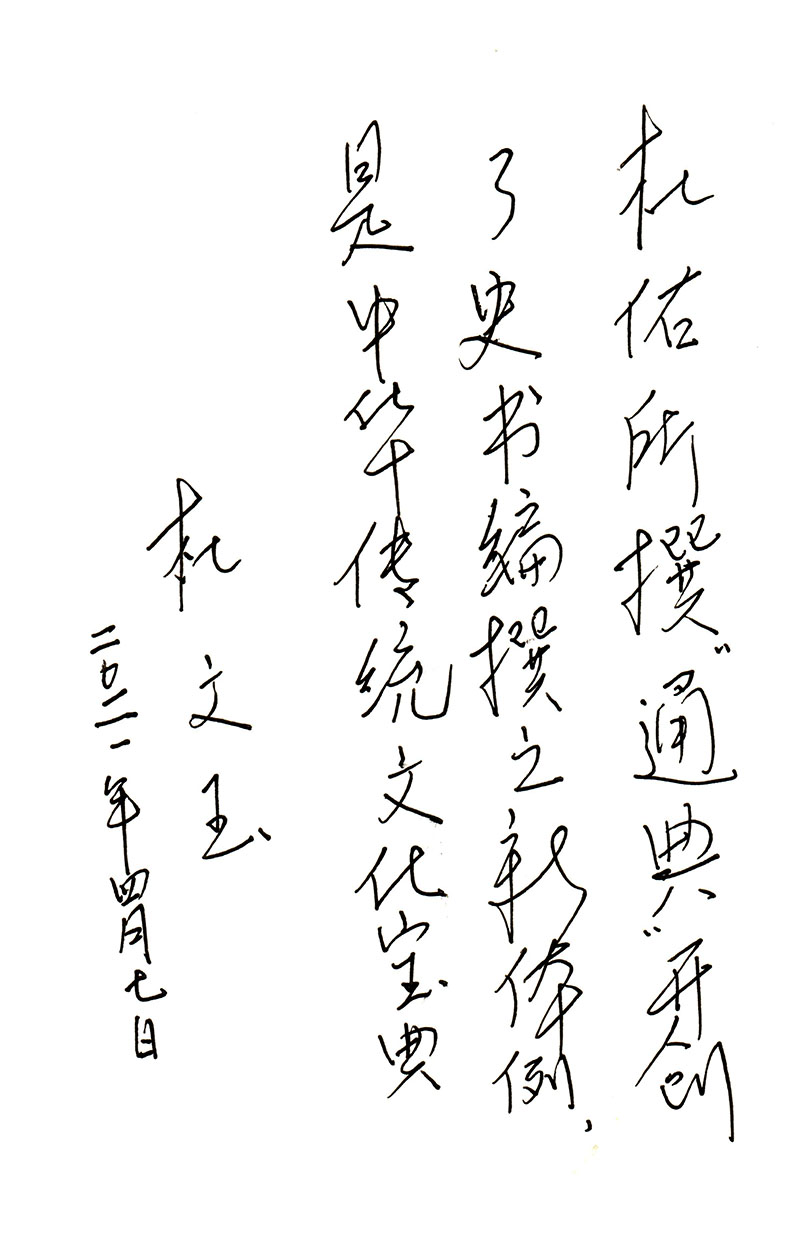 杜佑所撰“通典”开创
了史书编撰之新体例，
是中华传统文化宝典
杜文玉
二〇二一年四月七日